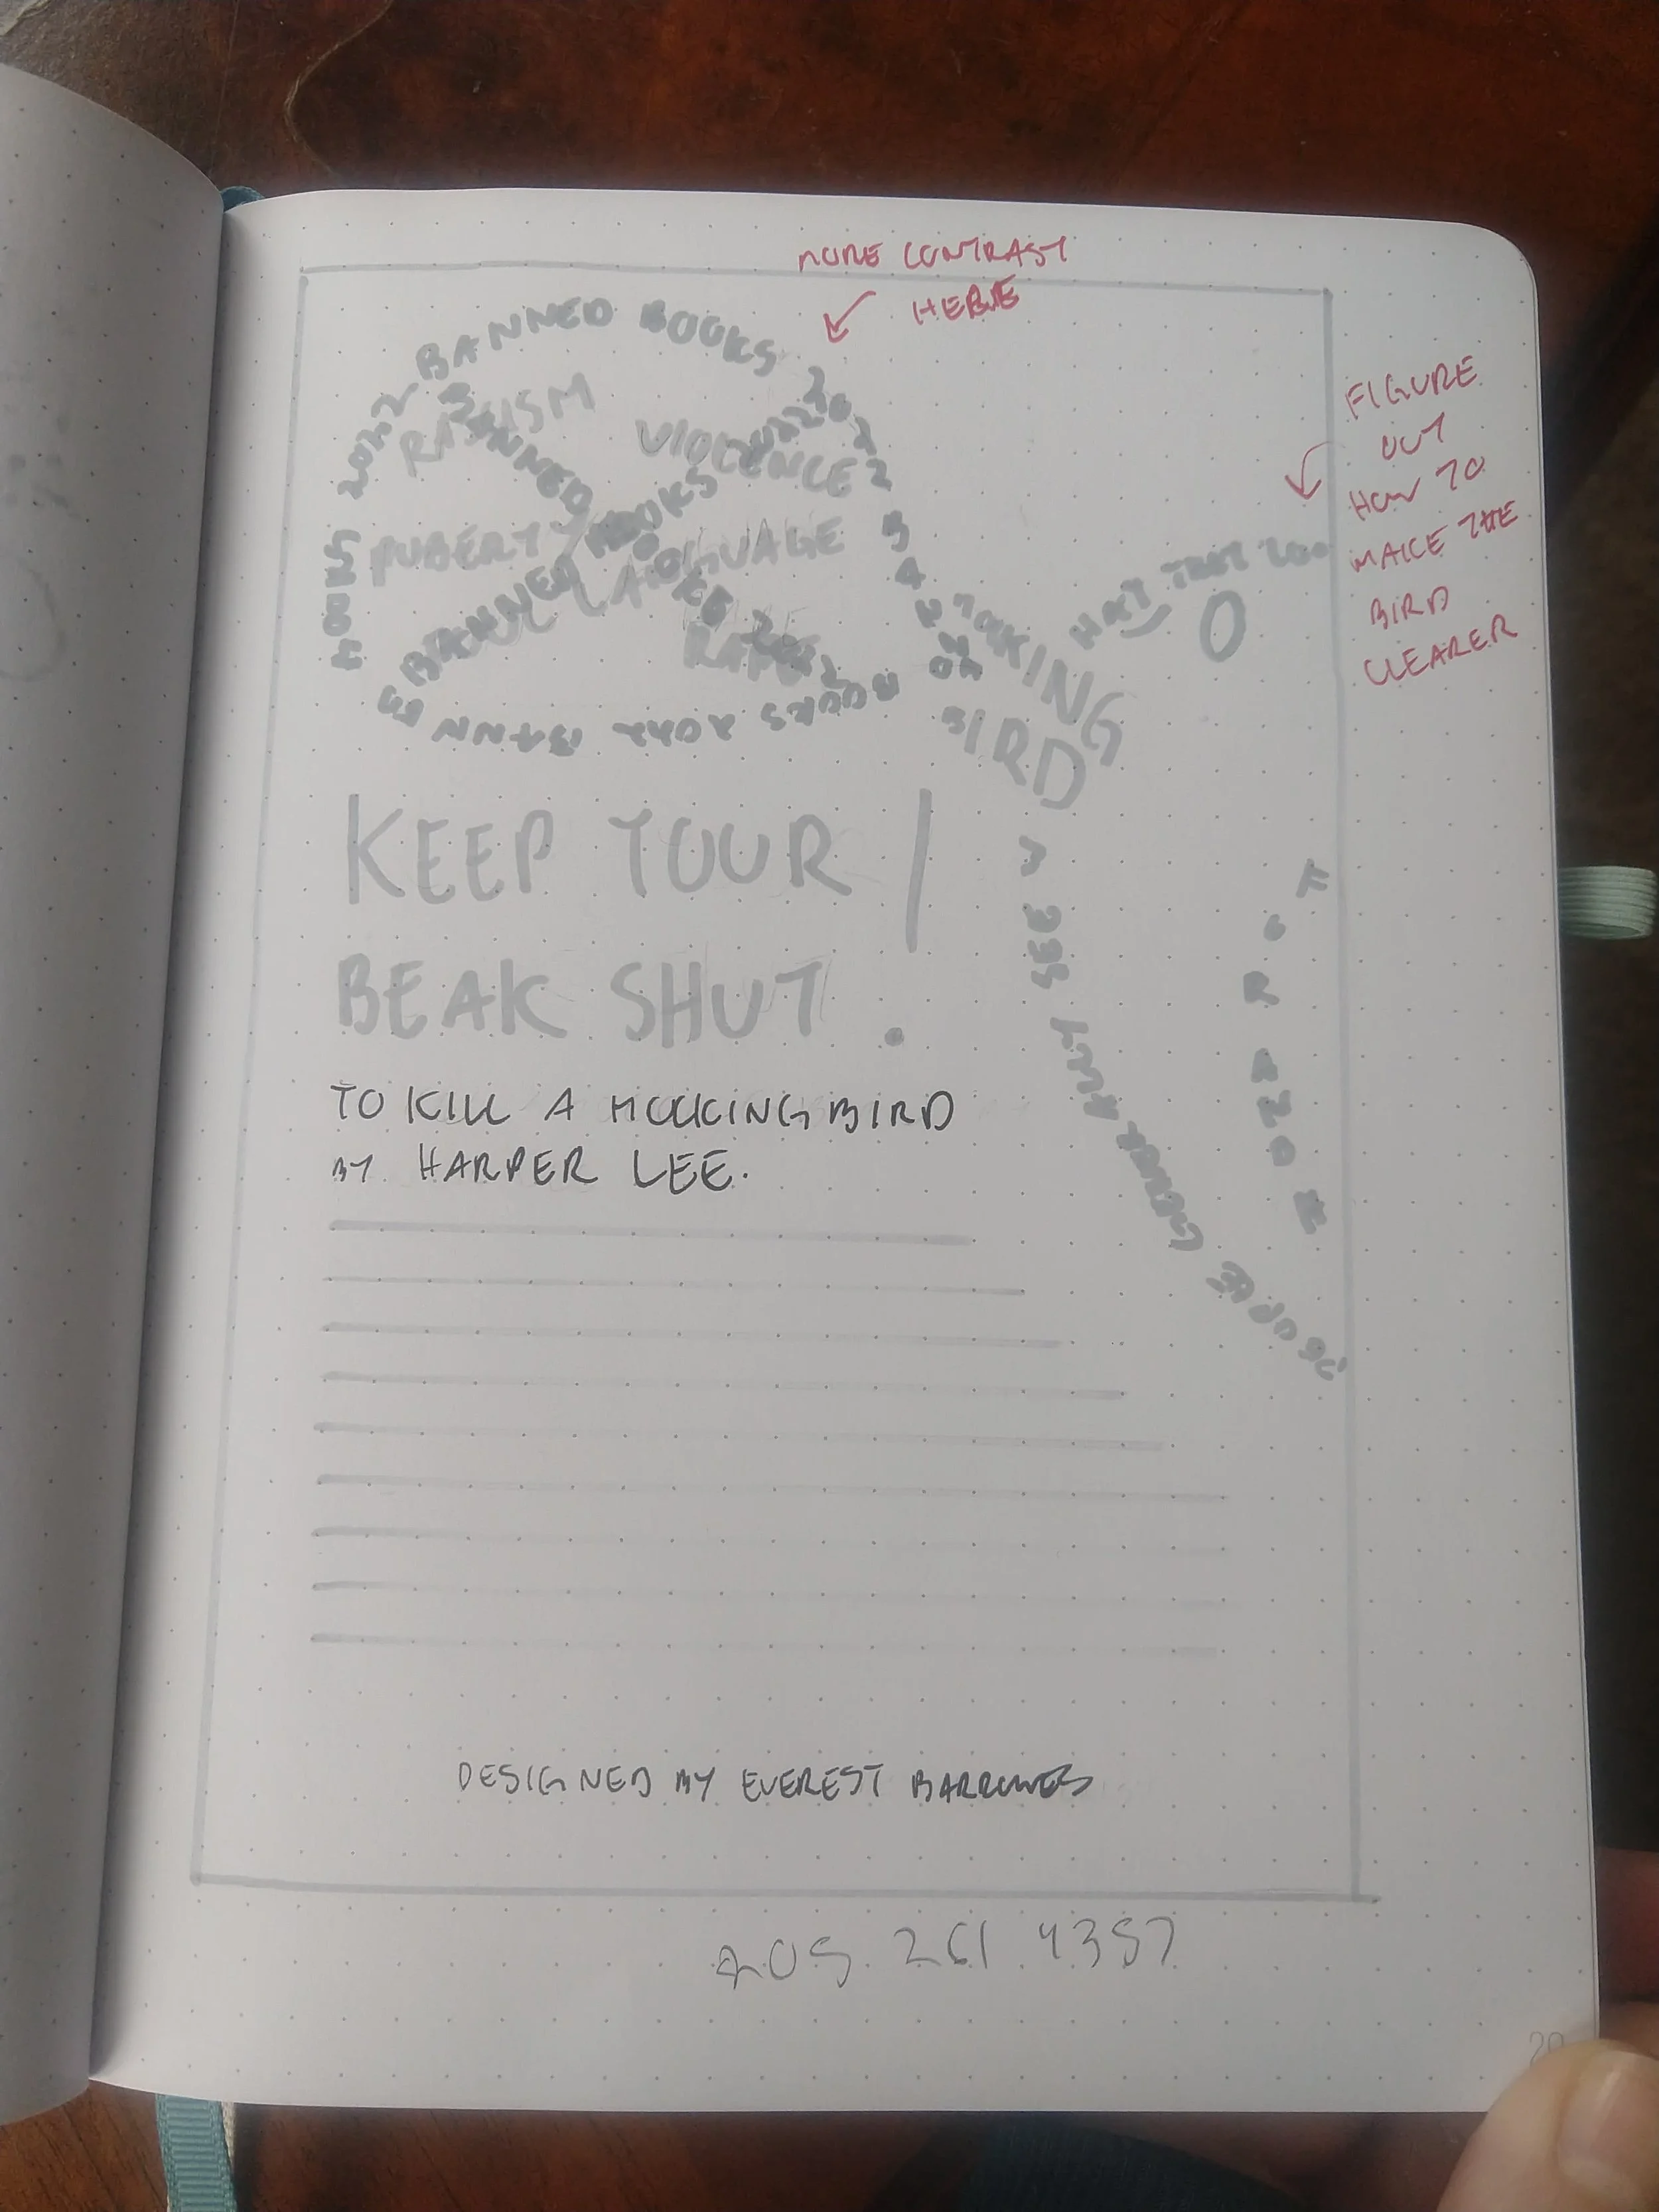 MORE CONTRAST
HERE
FIGURE
OUT
HOW TO
MAKE THE
BIRD
CLEARER
BANNED BOOKS 2022
BOOKS 2022
BANNED BOOKS 2022
BANNED BOOKS 2022
RACISM
VIOLENCE
PUBERTY
LANGUAGE
RAPE
BOOKS 2022 BANNED
MOCKING
BIRD
KEEP YOUR
BEAK SHUT.
TO KILL A MOCKINGBIRD
BY HARPER LEE.
DESIGNED BY EVEREST BARROWES
205.261.4357
20